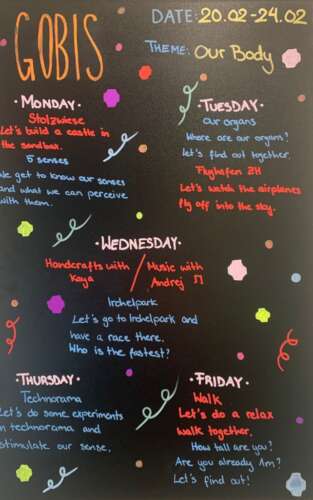 GOBIS
DATE: 20.02-24.02
THEME: Our Body
·MONDAY·
Stolzwiese
Let's build a castle in
the sandbox.
5 senses
We get to know our senses
and what we can perceive
with them.
·TUESDAY·
Our organs
Where are our organs?
Let's find out together.
Flughafen ZH
Let's watch the airplanes
fly off into the sky.
·WEDNESDAY·
Handcrafts with
Kaya
/
Music with
Andrej ♫
Irchelpark
Let's go to Irchelpark and
have a race there.
Who is the fastest?
·THURSDAY·
Technorama
Let's do some experiments
in technorama and
stimulate our sense.
·FRIDAY·
Walk
Let's do a relax
walk together.
How tall are you?
Are you already 1m?
Let's find out!